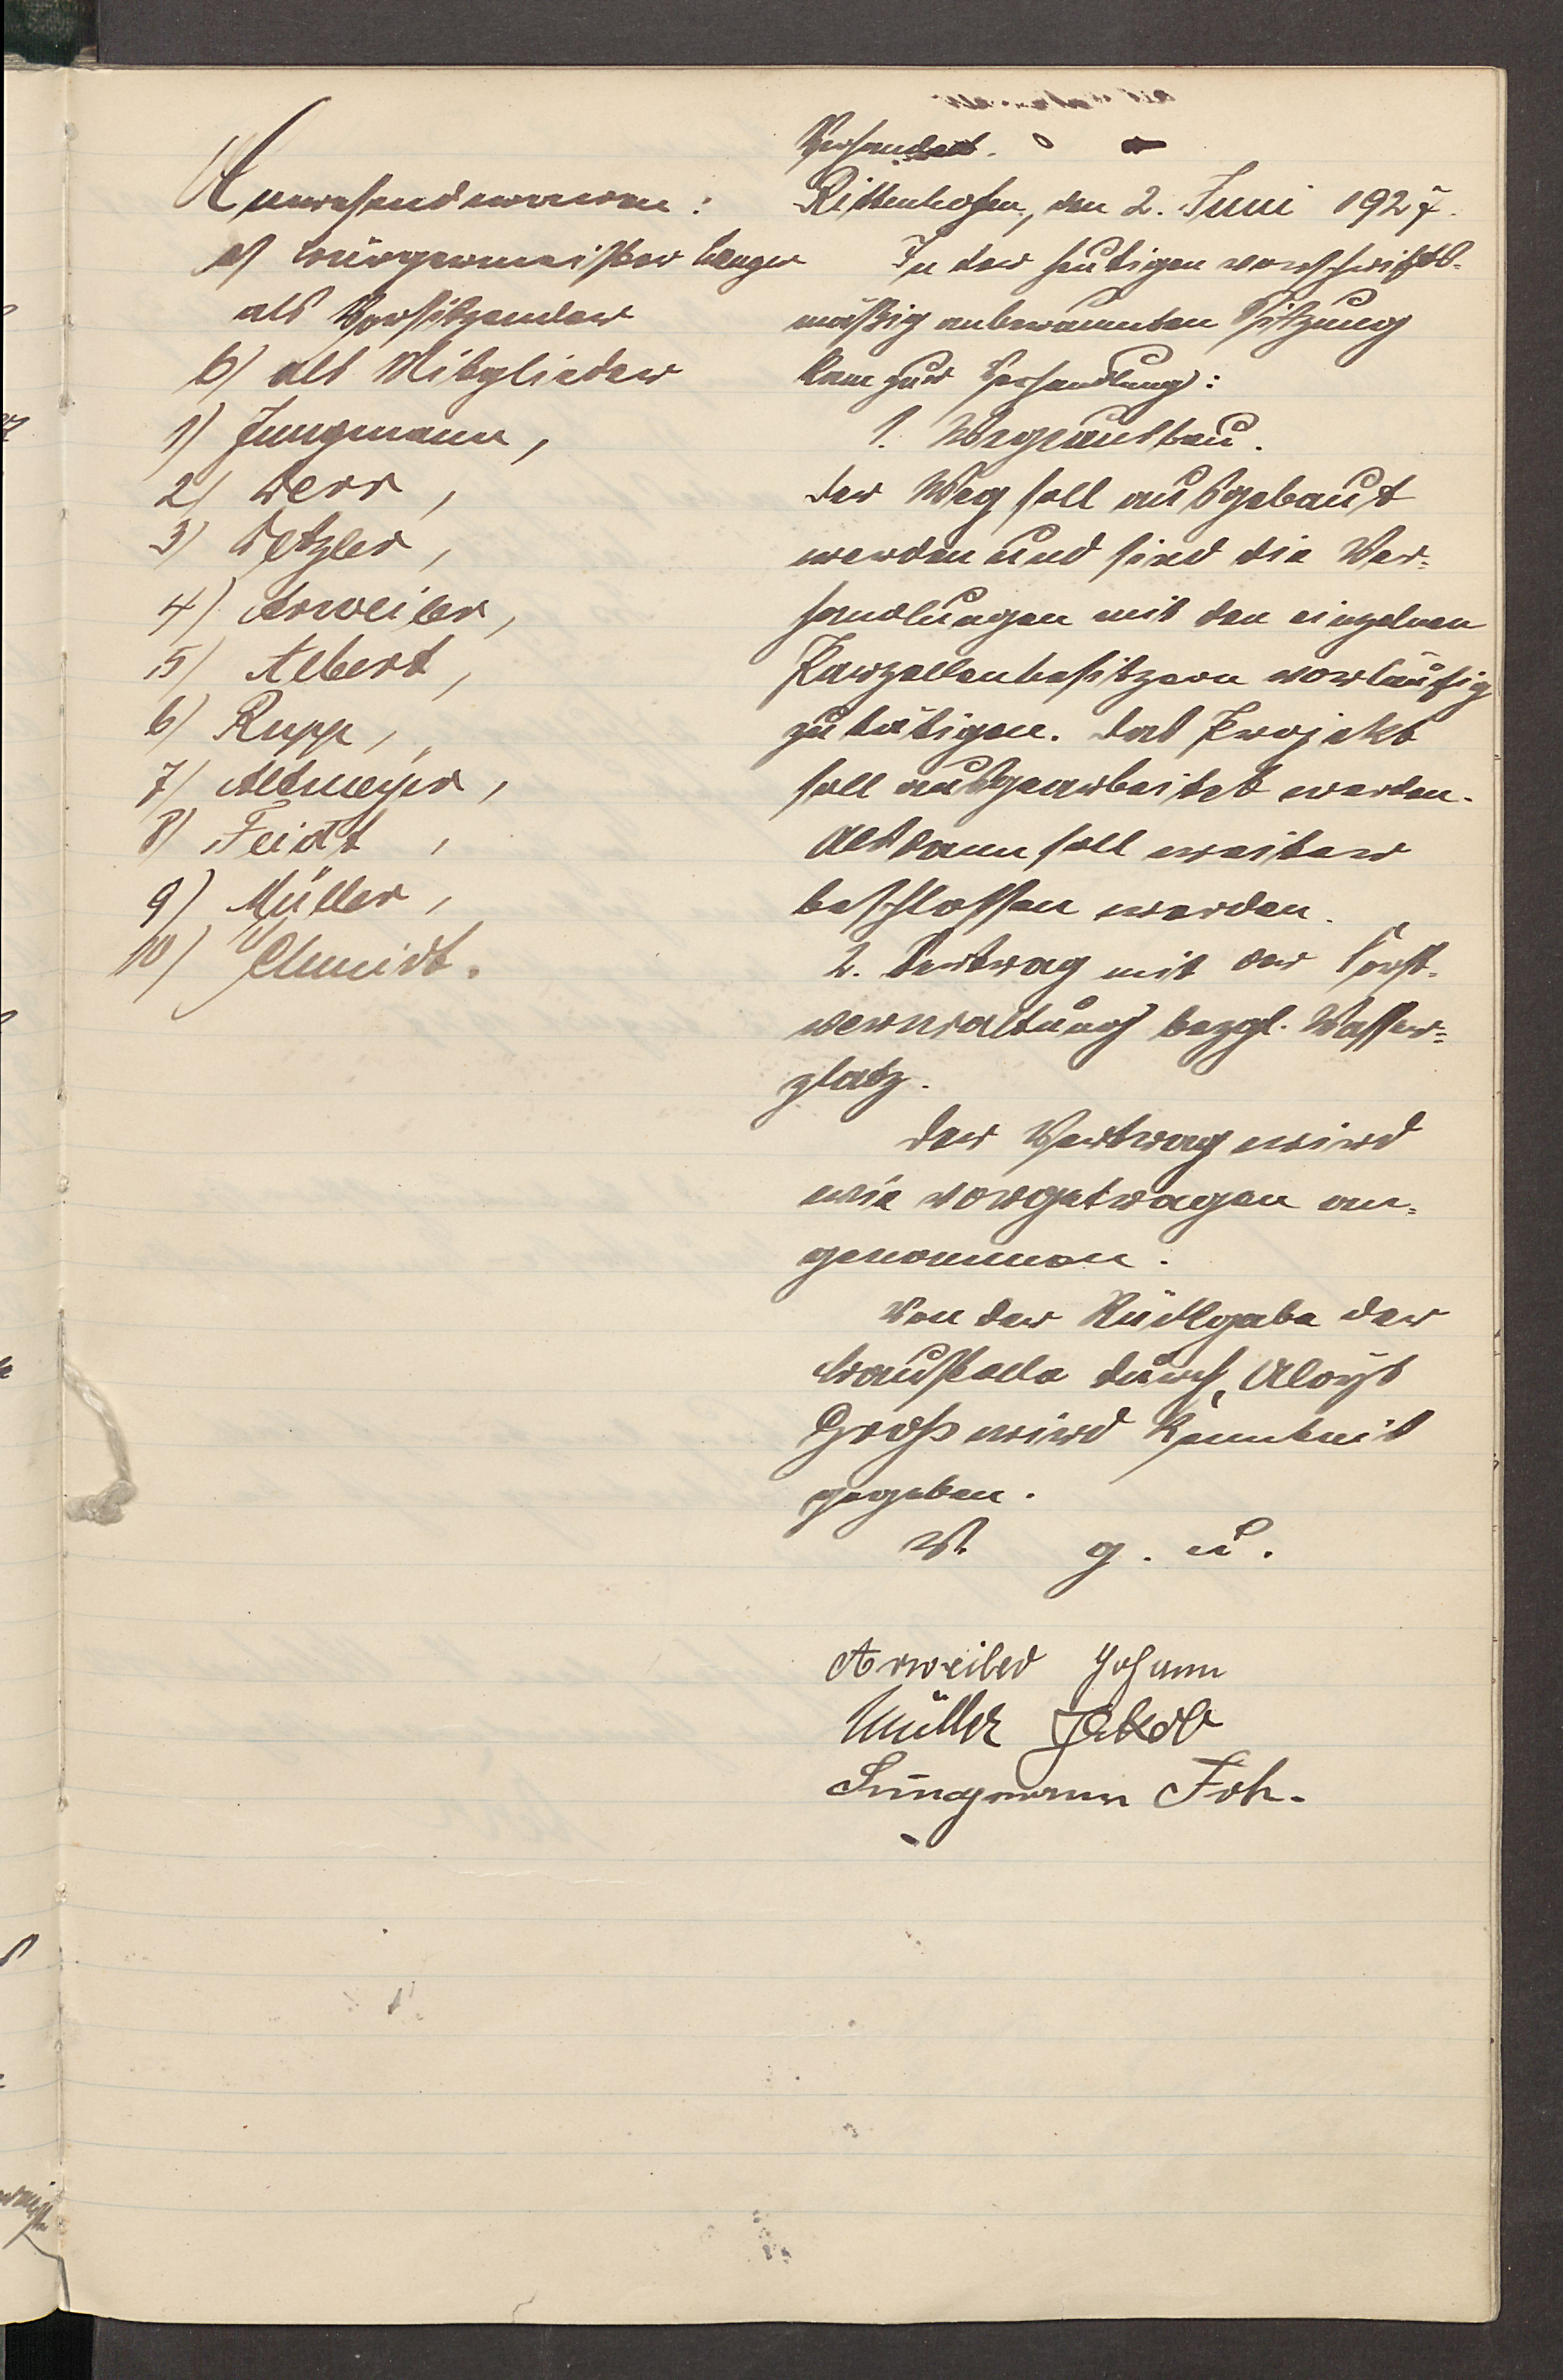 Anwesend waren:
a) Bürgermeister Langer
als Vorsitzender
b) als Mitglieder
1) Jungmann,
2) Derr,
3) Detzler,
4) Arweiler,
5) Albert,
6) Rupp,
7) Altmeyer,
8) Feidt,
9) Müller,
10) Schmidt.
Verhandelt.
Rittenhofen, den 2. Juni 1927.
In der heutigen vorschrifts-
mäßig anberaumten Sitzung
kam zur Verhandlung:
1. Wegeausbau.
Der Weg soll ausgebaut
werden und sind die Ver-
handlungen mit den einzelnen
Parzellenbesitzern vorläufig
zu tätigen. Das Projekt
soll ausgearbeitet werden.
Alsdann soll weiter
beschlossen werden.
2. Vertrag mit der Forst-
verwaltung bezgl. Wasser-
platz.
Der Vertrag wird
wie vorgetragen an-
genommen.
Von der Rückgabe der
Baustelle durch Aloys
Groß wird Kenntnis
gegeben.
V. g. u.
Arweiler Johann
Müller Jakob
Jungmann Joh.